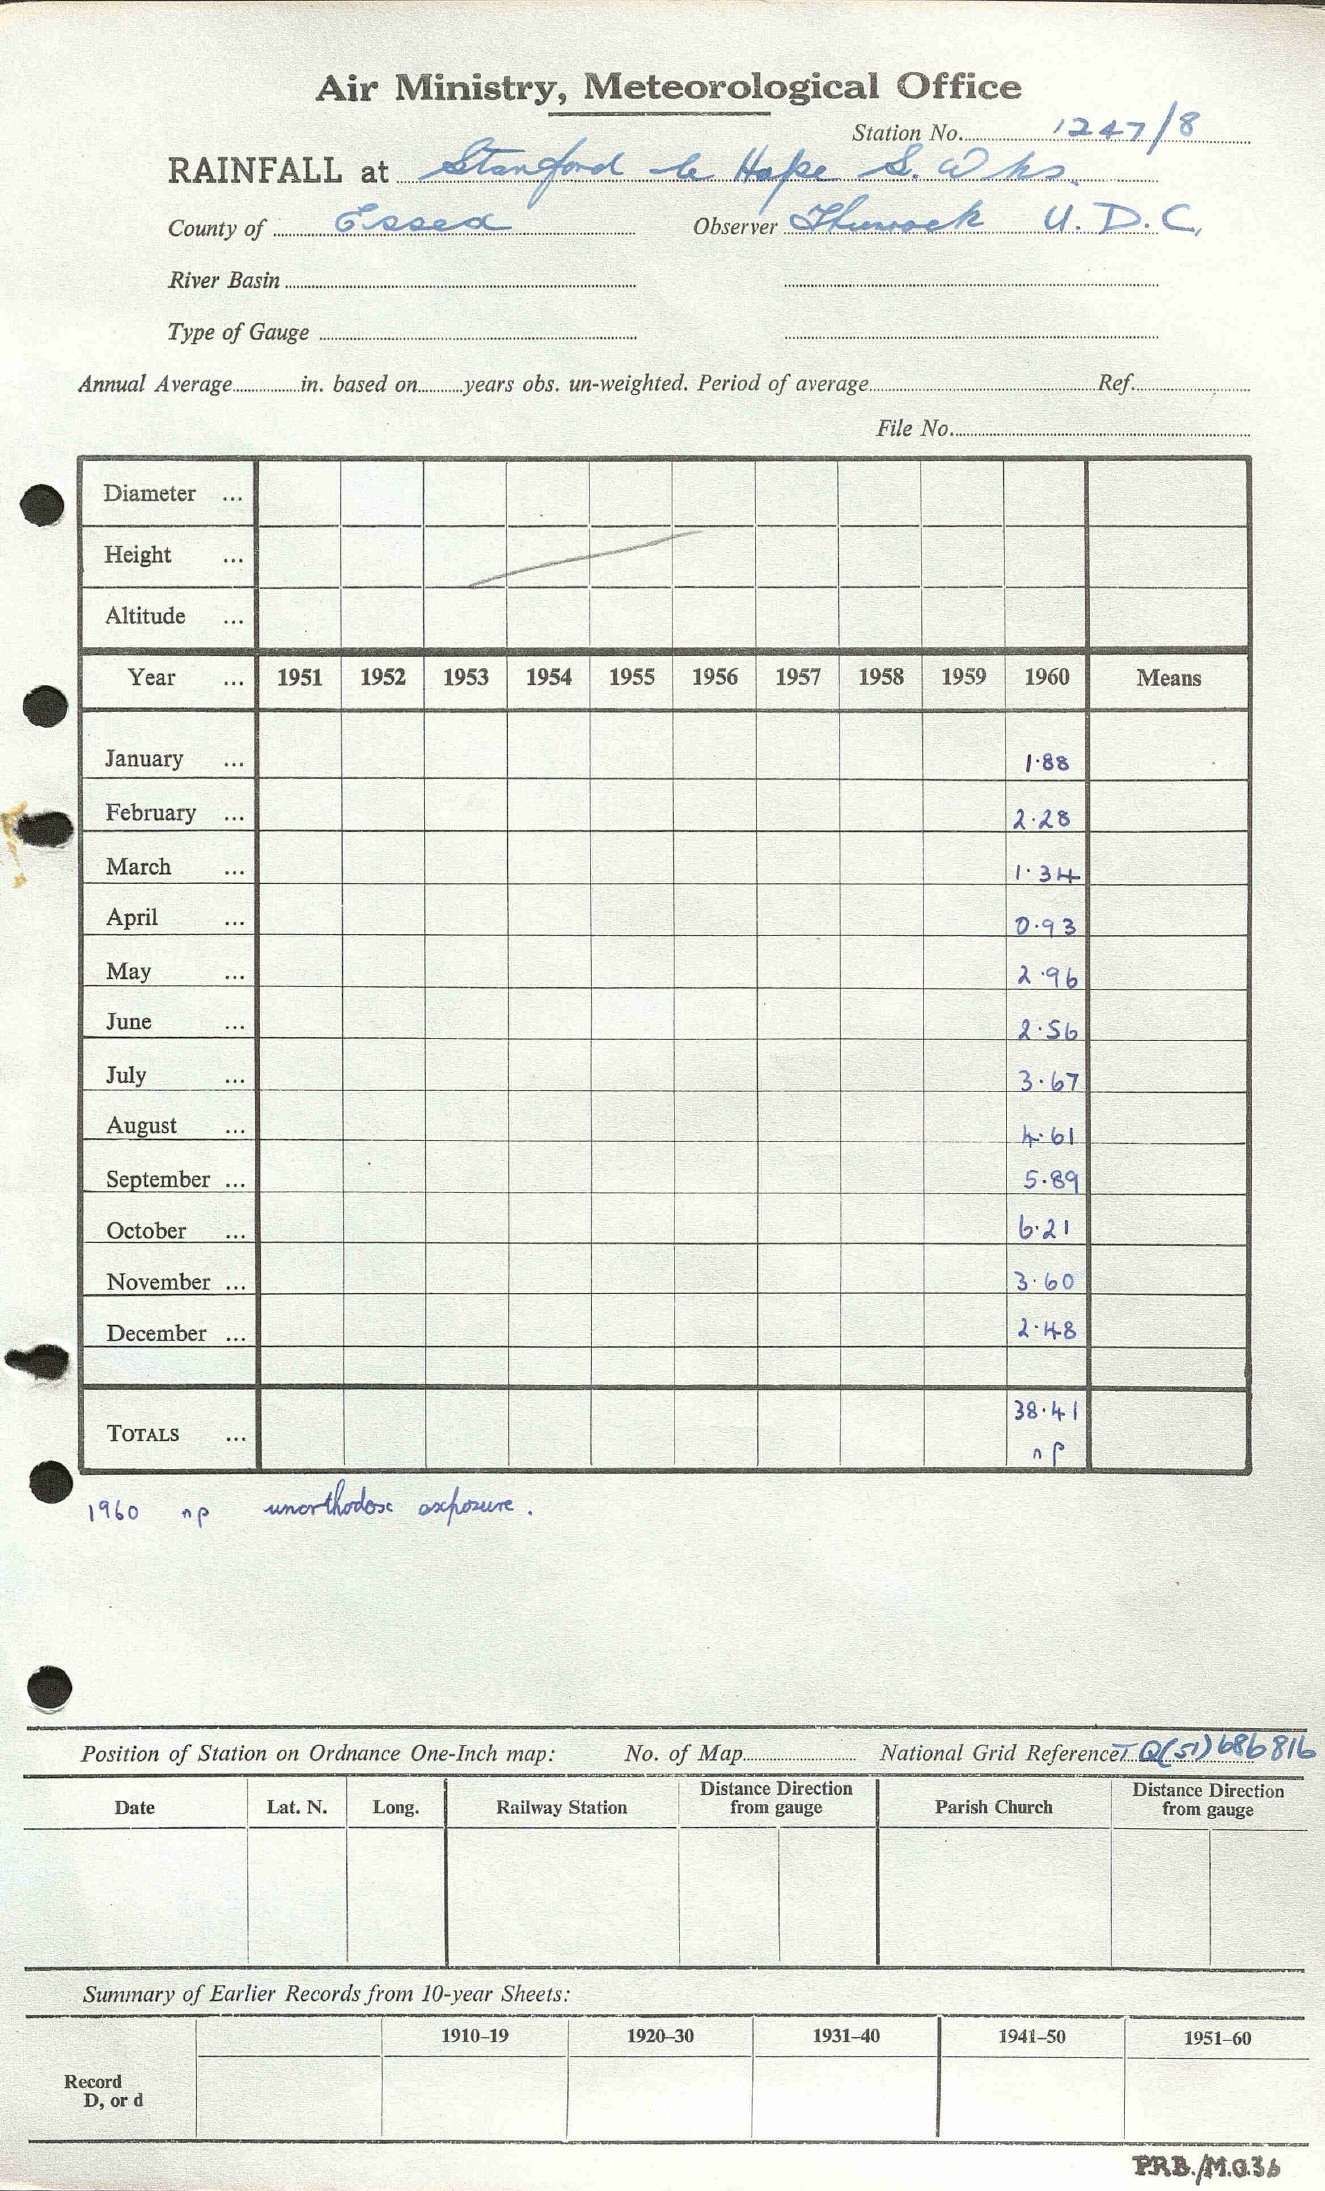 Air Ministry, Meteorological Office
Station No. 1247/8
RAINFALL at Stanford le Hope S. Wks.
County of Essex Observer Thurrock U.D.C.
River Basin
Type of Gauge
Annual Average in. based on years obs. un-weighted. Period of average Ref.
File No.
Diameter ...
Height ...
Altitude ...
Year ... 1951 1952 1953 1954 1955 1956 1957 1958 1959 1960 Means
January ... 1.88
February ... 2.28
March ... 1.34
April ... 0.93
May ... 2.96
June ... 2.56
July ... 3.67
August ... 4.61
September ... 5.89
October ... 6.21
November ... 3.60
December ... 2.48
TOTALS ... 38.41
np
1960 np unorthodox exposure.
Position of Station on Ordnance One-Inch map: No. of Map National Grid Reference TQ(51)686816
Date Lat. N. Long. Railway Station Distance Direction from gauge Parish Church Distance Direction from gauge
Summary of Earlier Records from 10-year Sheets:
1910–19 1920–30 1931–40 1941–50 1951–60
Record
D, or d
P.R.B./M.O.36